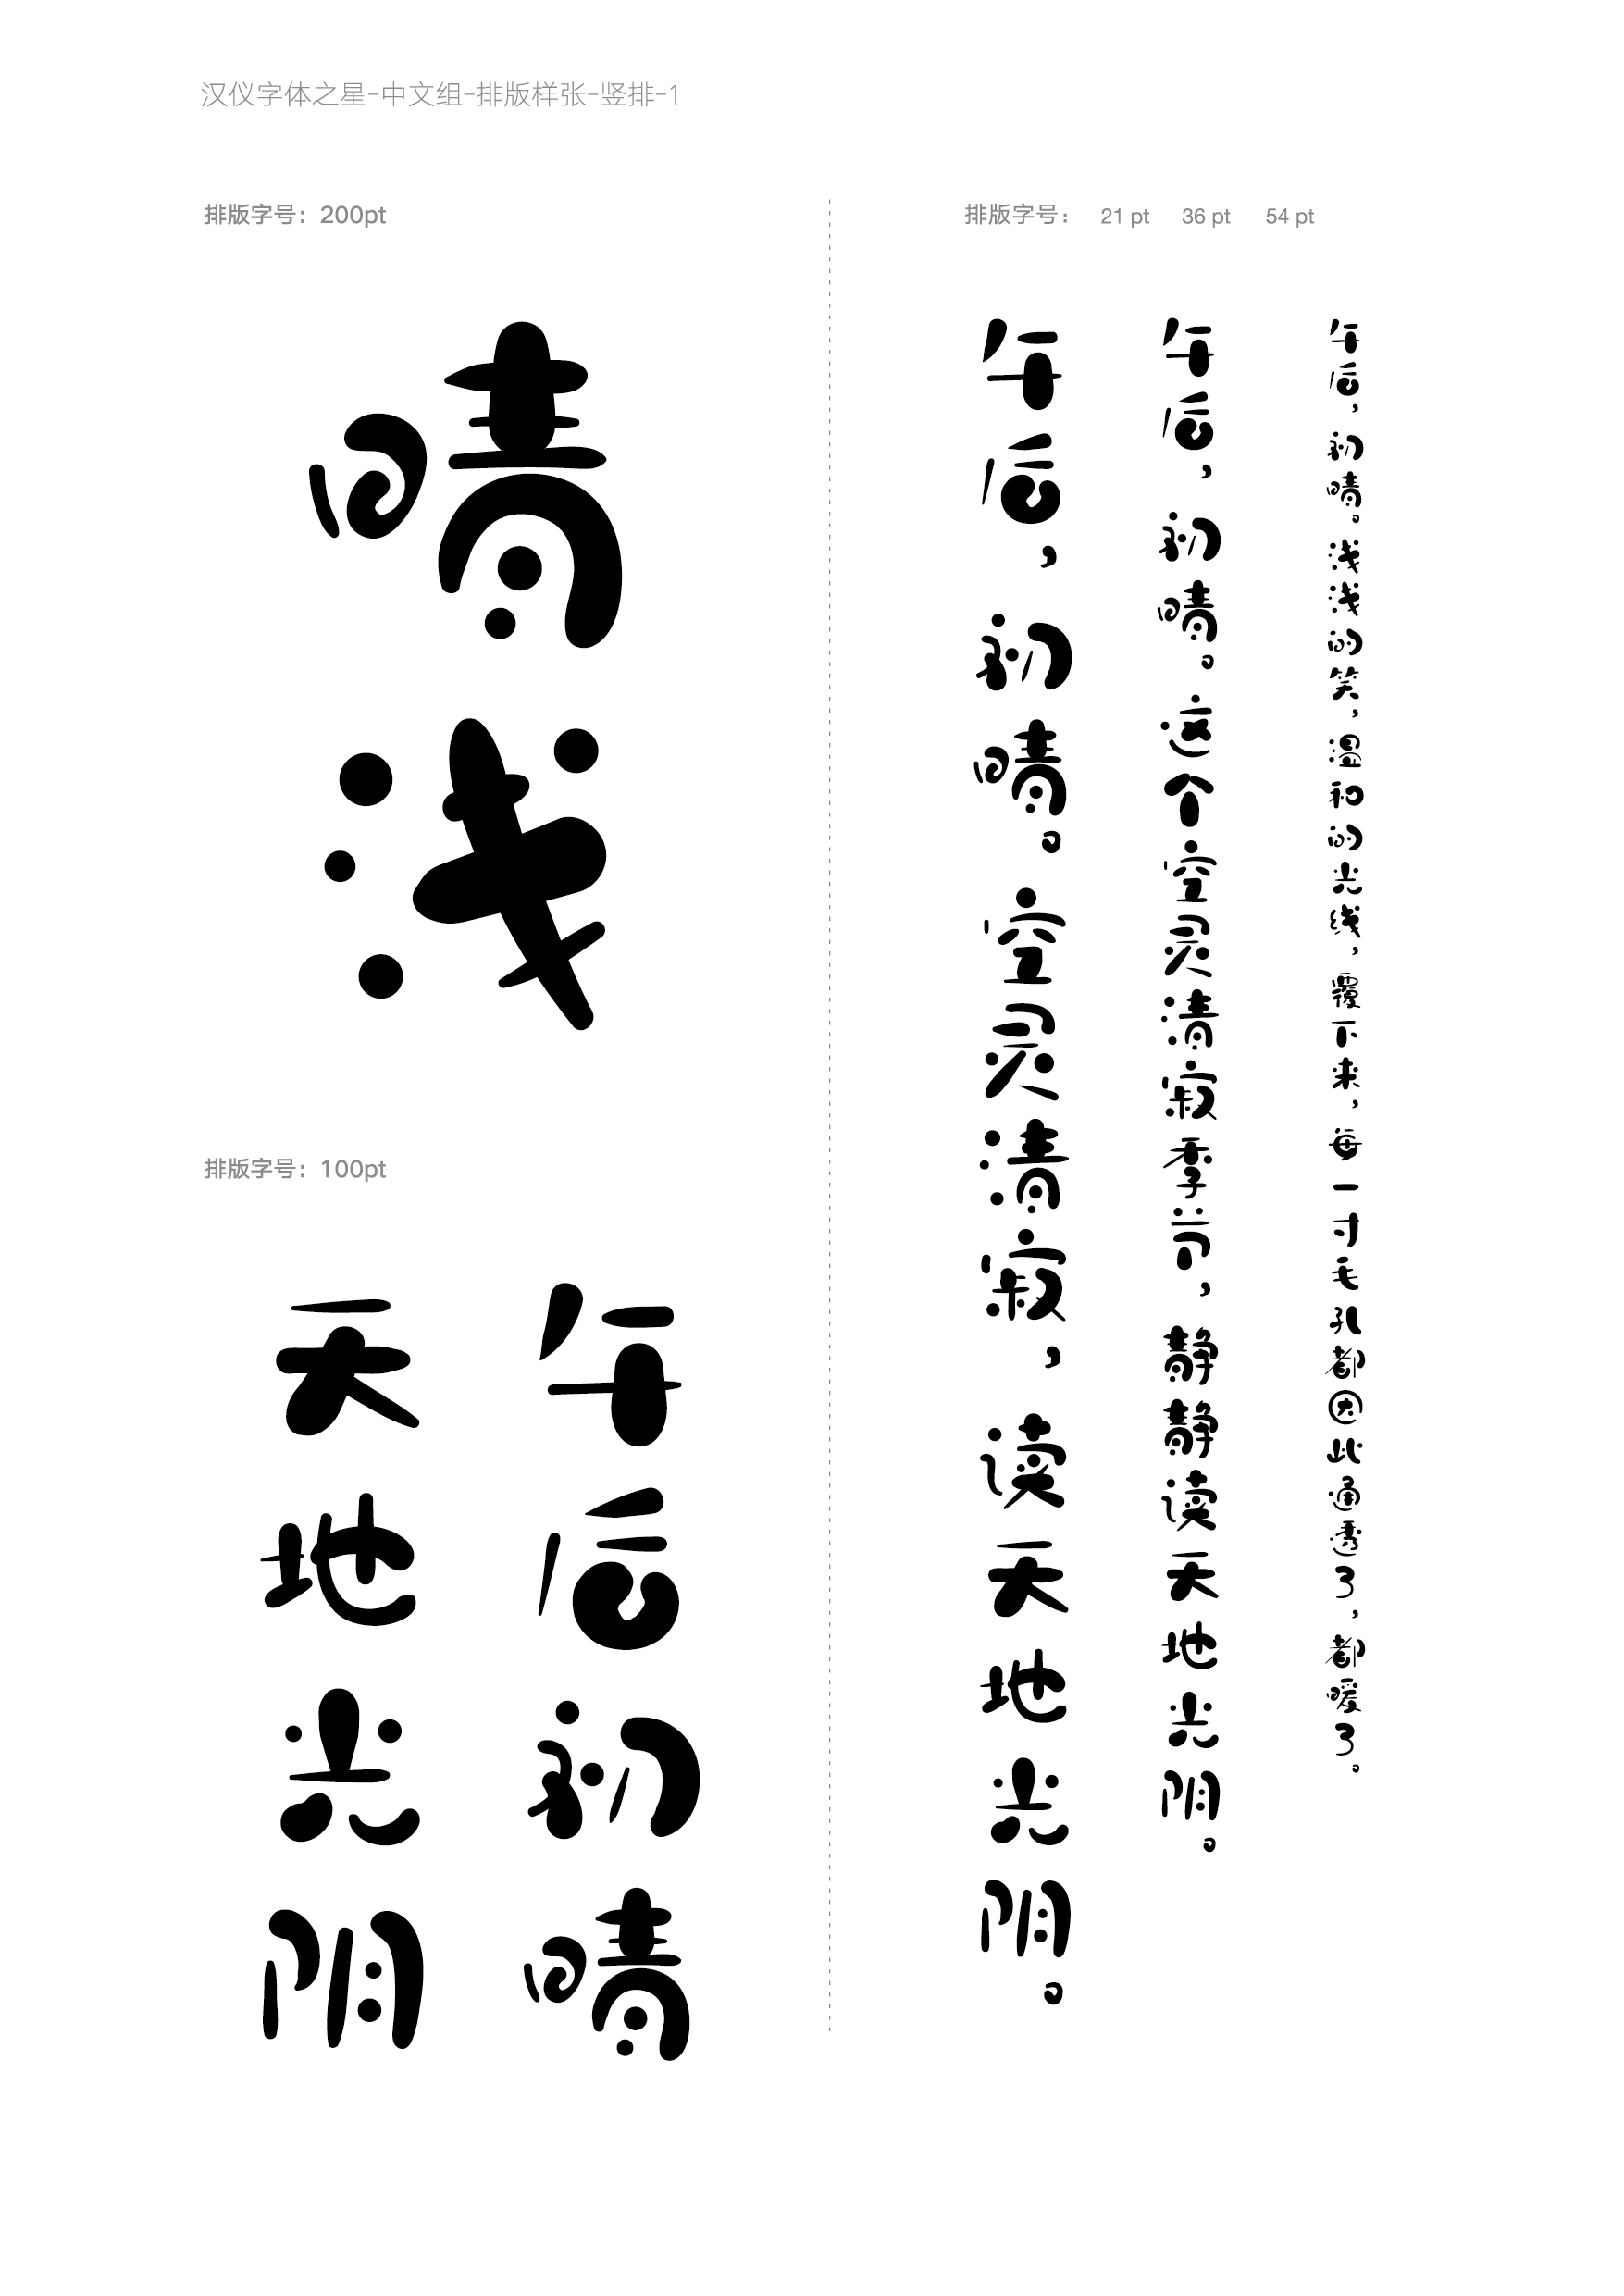 汉仪字体之星-中文组-排版样张-竖排-1
排版字号：200pt
晴浅
排版字号：100pt
午后初晴
天地光阴
排版字号： 21 pt 36 pt 54 pt
午后，初晴。浅浅的笑，温和的光线，覆下来，每一寸毛孔都因此通透了，都暖了。
午后，初晴。这个空灵清寂季节，静静读天地光阴。
午后，初晴。空灵清寂，读天地光阴。